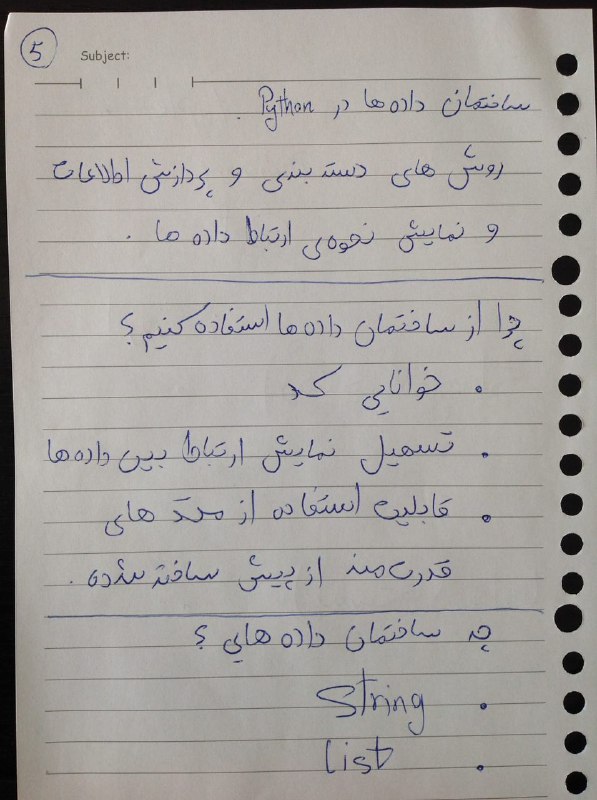 5
Subject:
ساختمان داده ها در Python.
روش های دسته بندی و پردازش اطلاعات
و نمایش نحوه‌ی ارتباط داده ها .
چرا از ساختمان داده ها استفاده کنیم؟
• خوانایی کد
• تسهیل نمایش ارتباط بین داده ها
• قابلیت استفاده از متد های
قدرت مند از پیش ساخته شده .
چه ساختمان داده هایی ؟
• String
• List